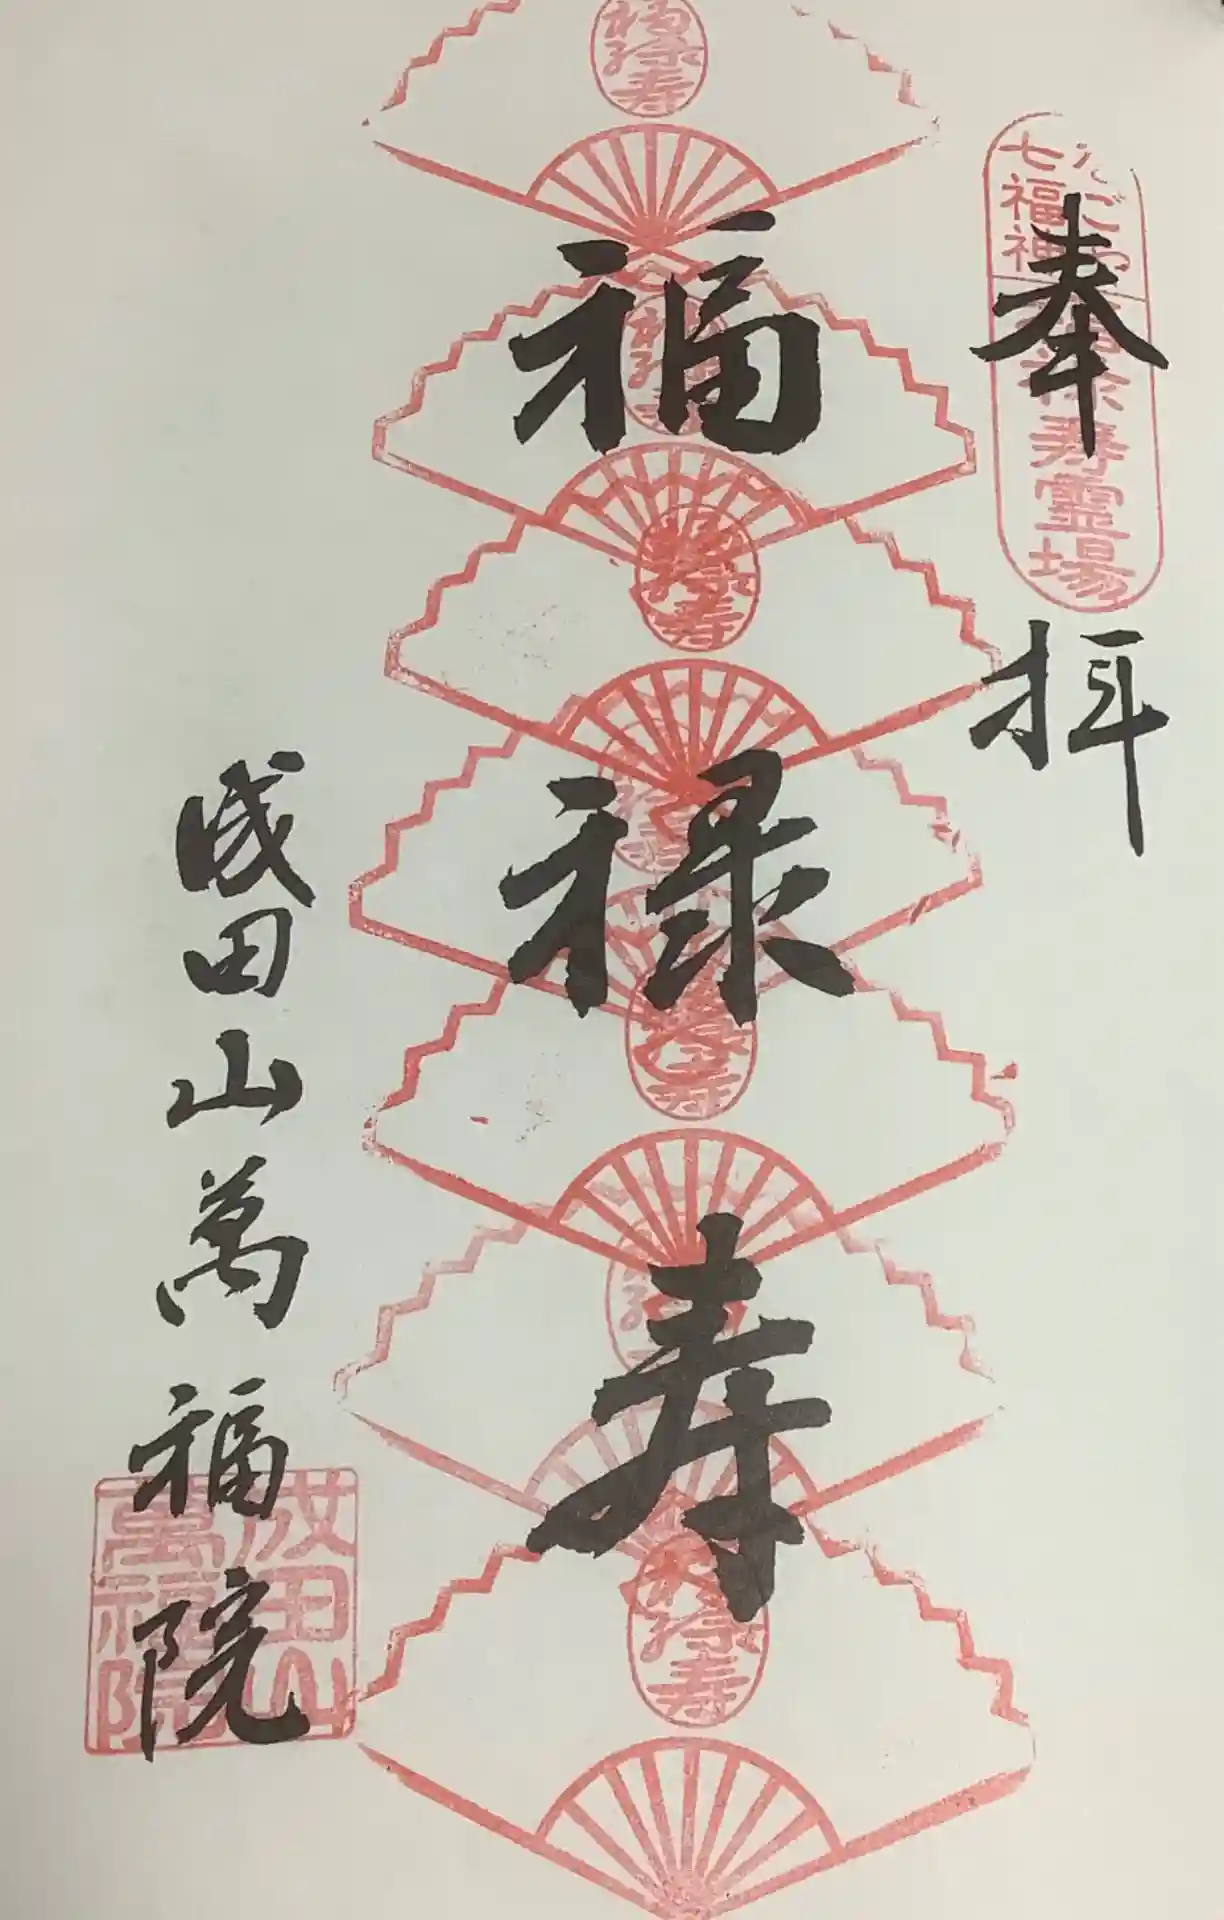 奉拝
なごや七福神
福禄寿霊場
福禄寿
福禄寿
福禄寿
福禄寿
成田山萬福院
成田山萬福院